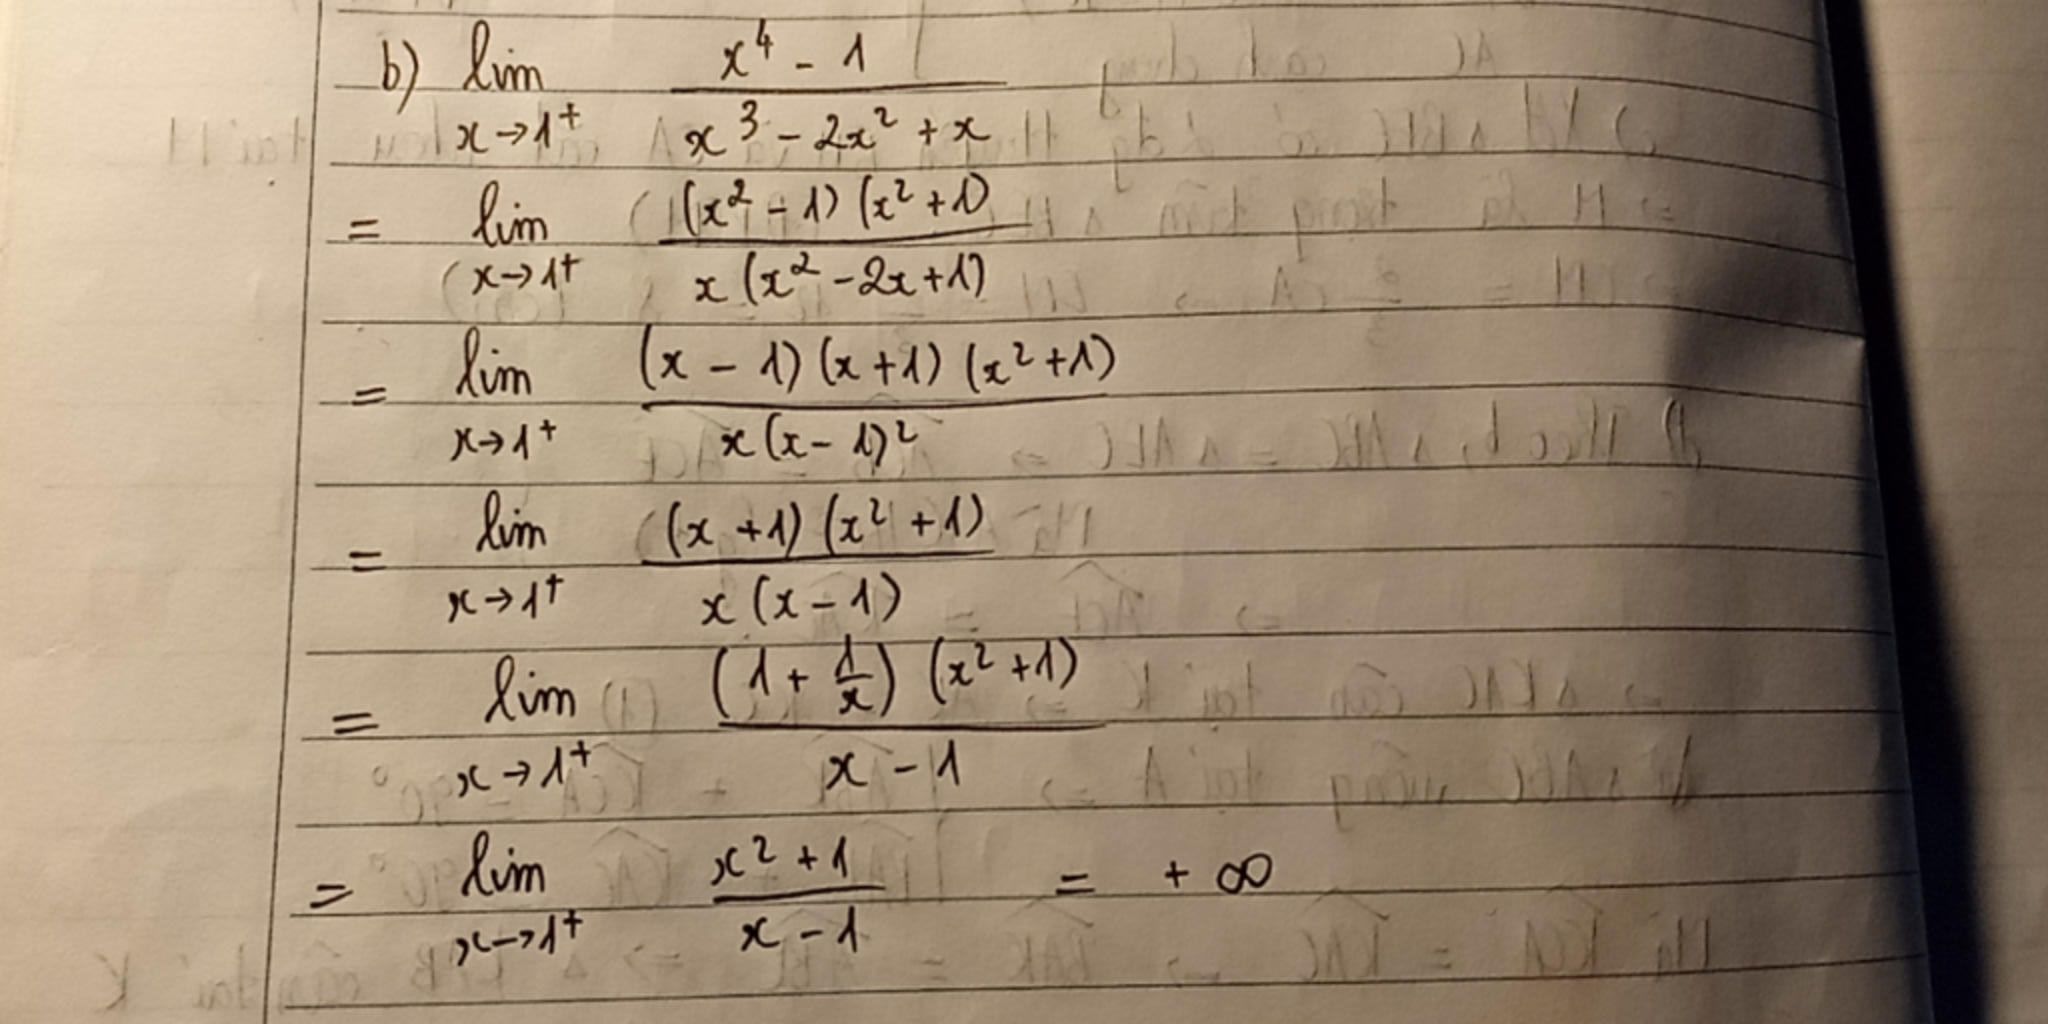 b) lim x→1⁺ (x⁴ - 1) / (x³ - 2x² + x)
= lim x→1⁺ (x² - 1)(x² + 1) / x(x² - 2x + 1)
= lim x→1⁺ (x - 1)(x + 1)(x² + 1) / x(x - 1)²
= lim x→1⁺ (x + 1)(x² + 1) / x(x - 1)
= lim x→1⁺ (1 + 1/x)(x² + 1) / x - 1
= lim x→1⁺ x² + 1 / x - 1 = + ∞